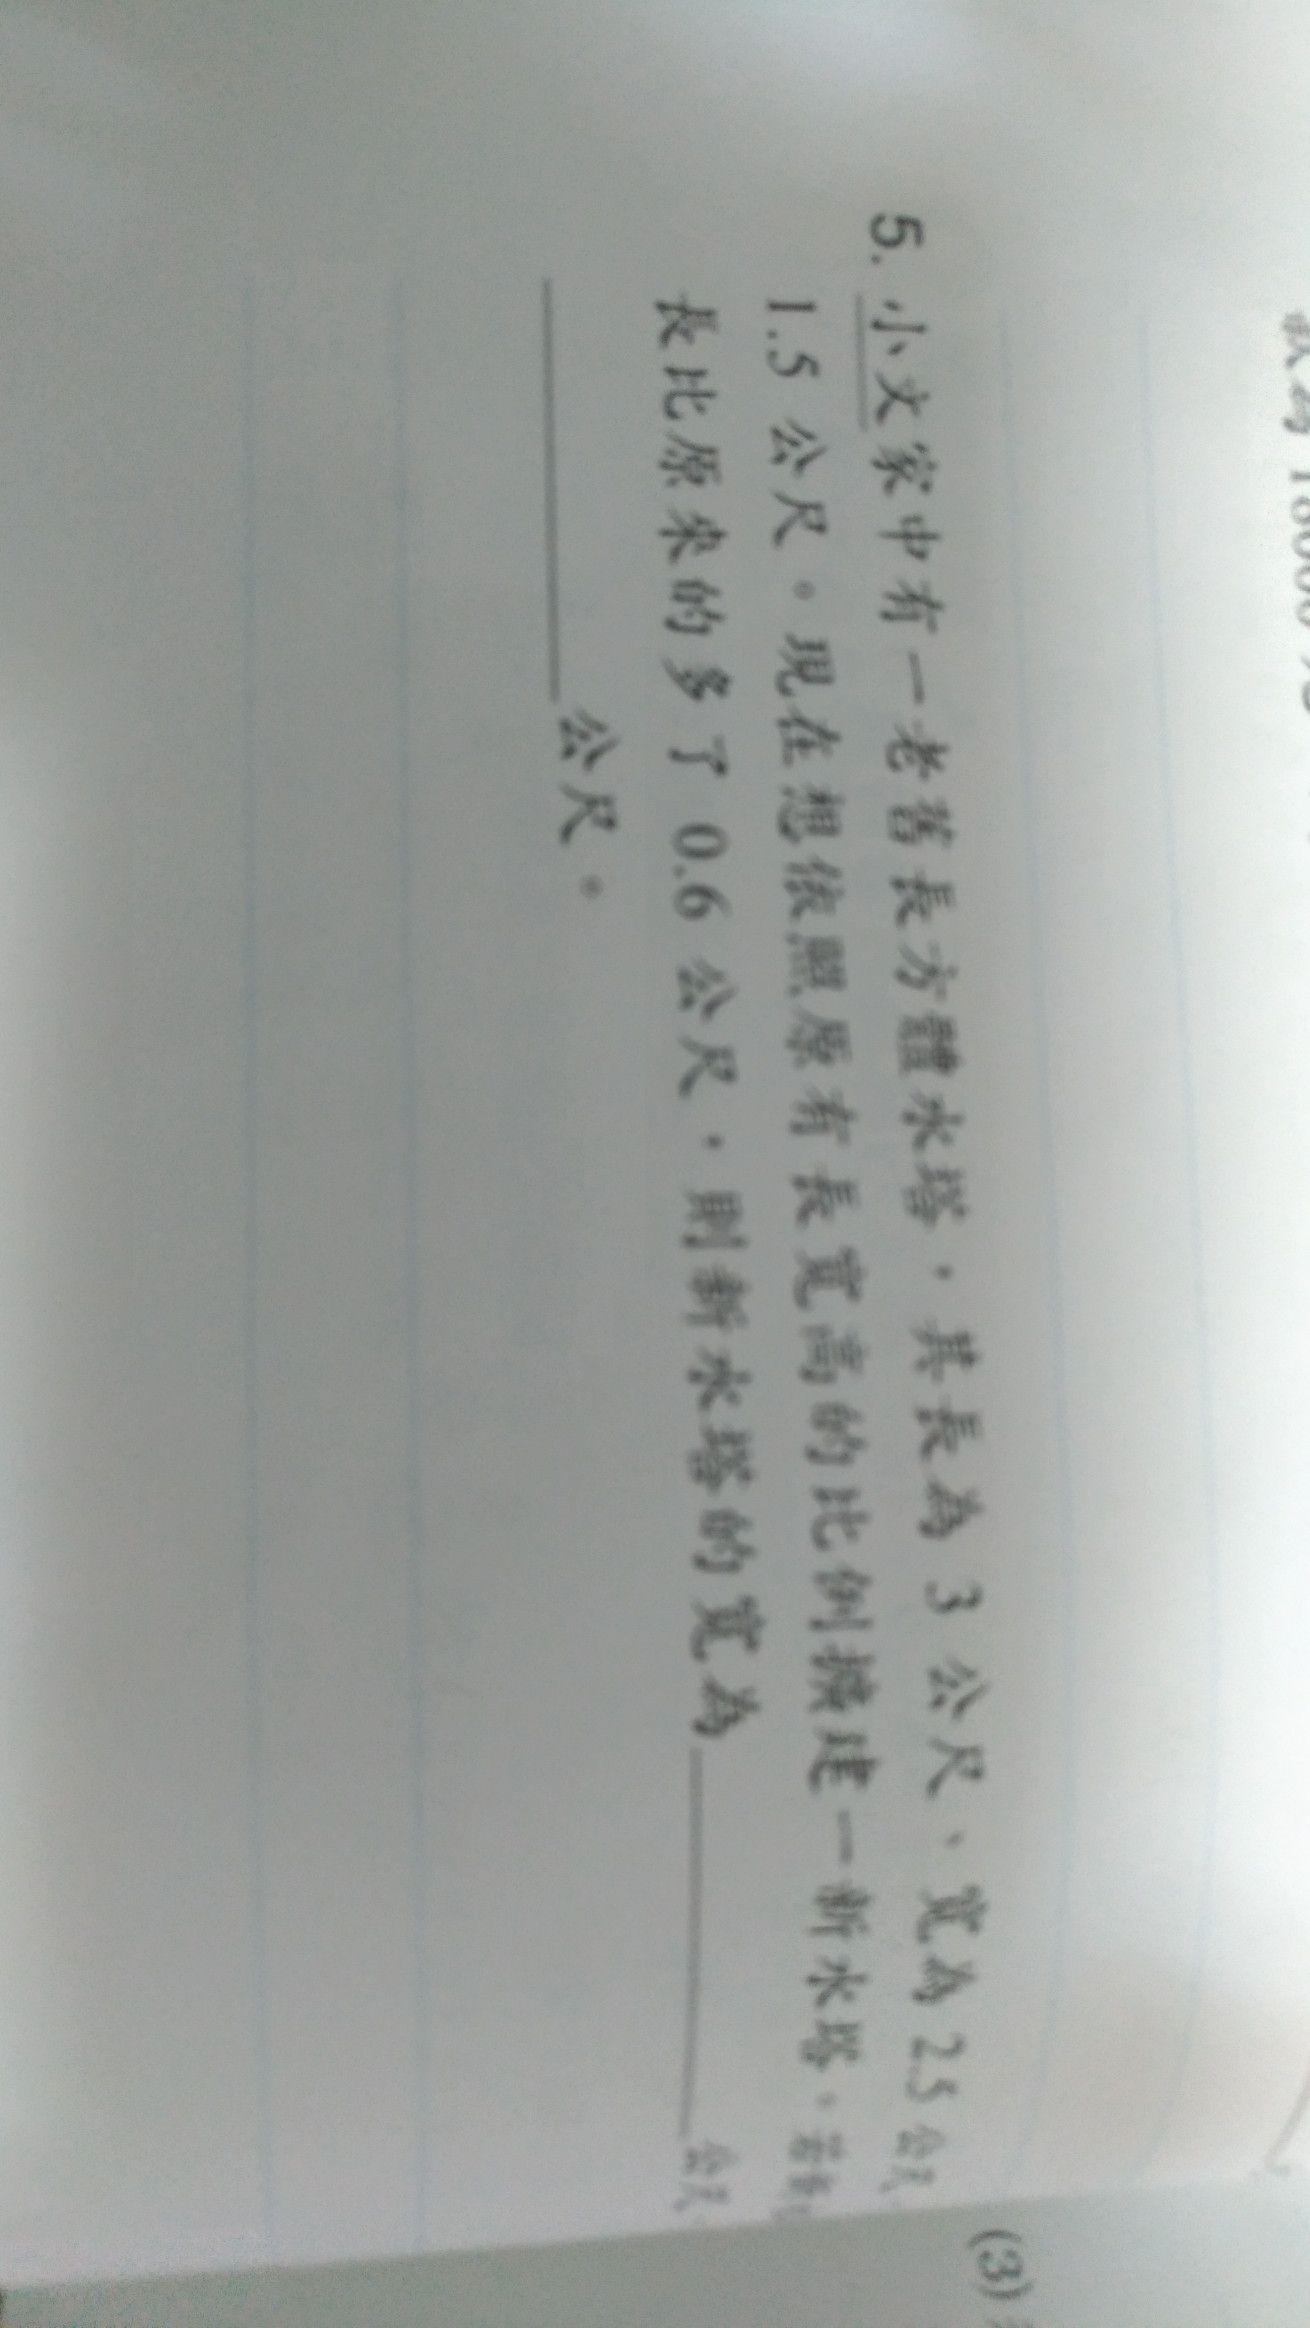 5. 小文家中有一老舊長方體水塔，其長為 3 公尺、寬為 2.5 公尺
1.5 公尺。現在想依照原有長寬高的比例擴建一新水塔，若新
長比原來的多了 0.6 公尺，則新水塔的寬為________公尺
________公尺。
(3)